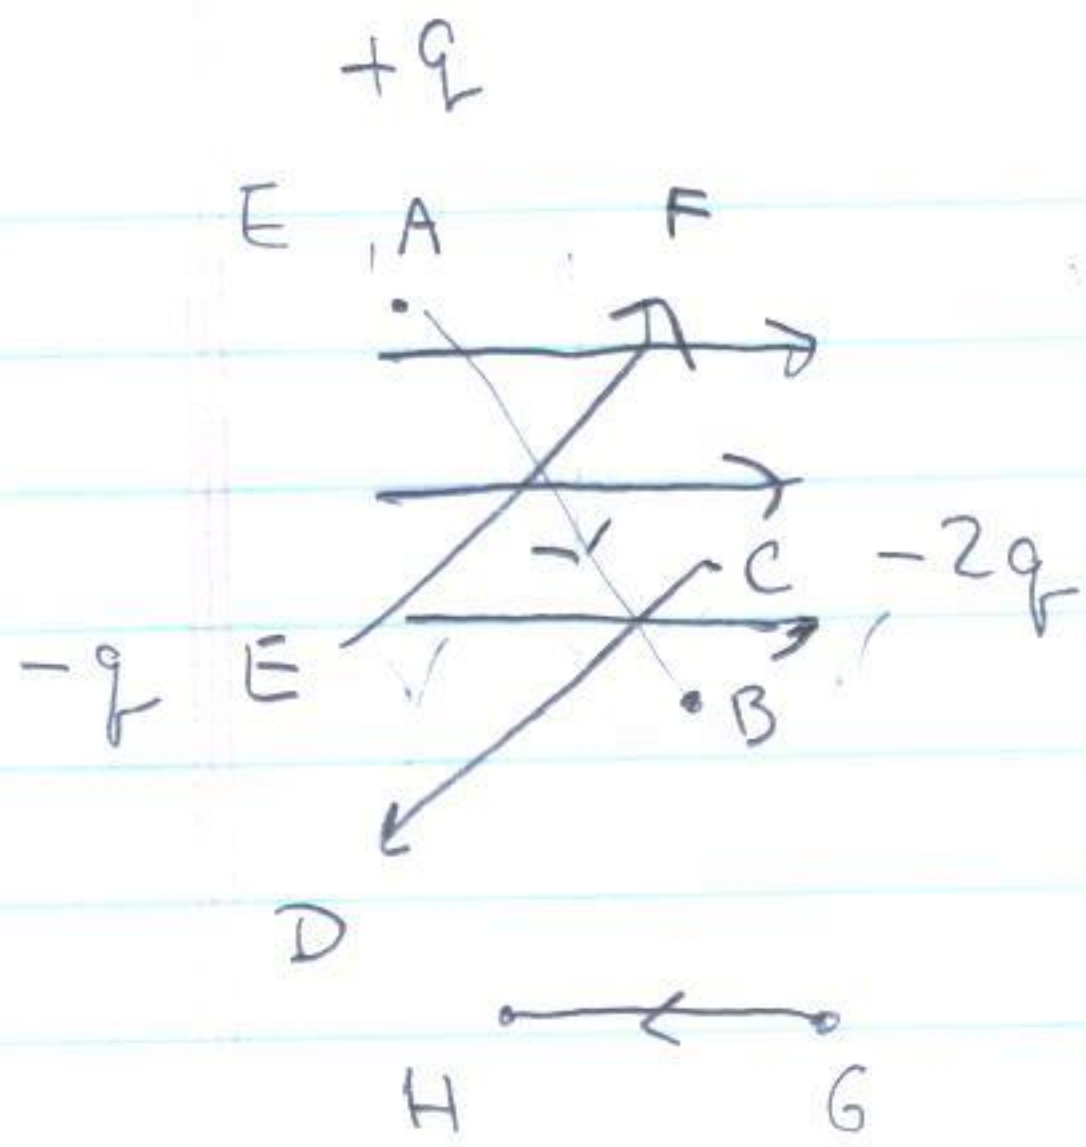 +q
E A F
C -2q
-q E
B
D
H G